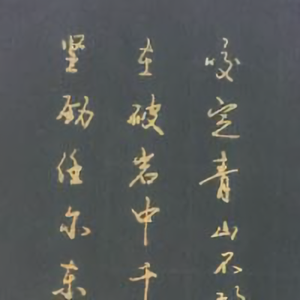 咬定青山不
在破岩中千
坚劲任尔东